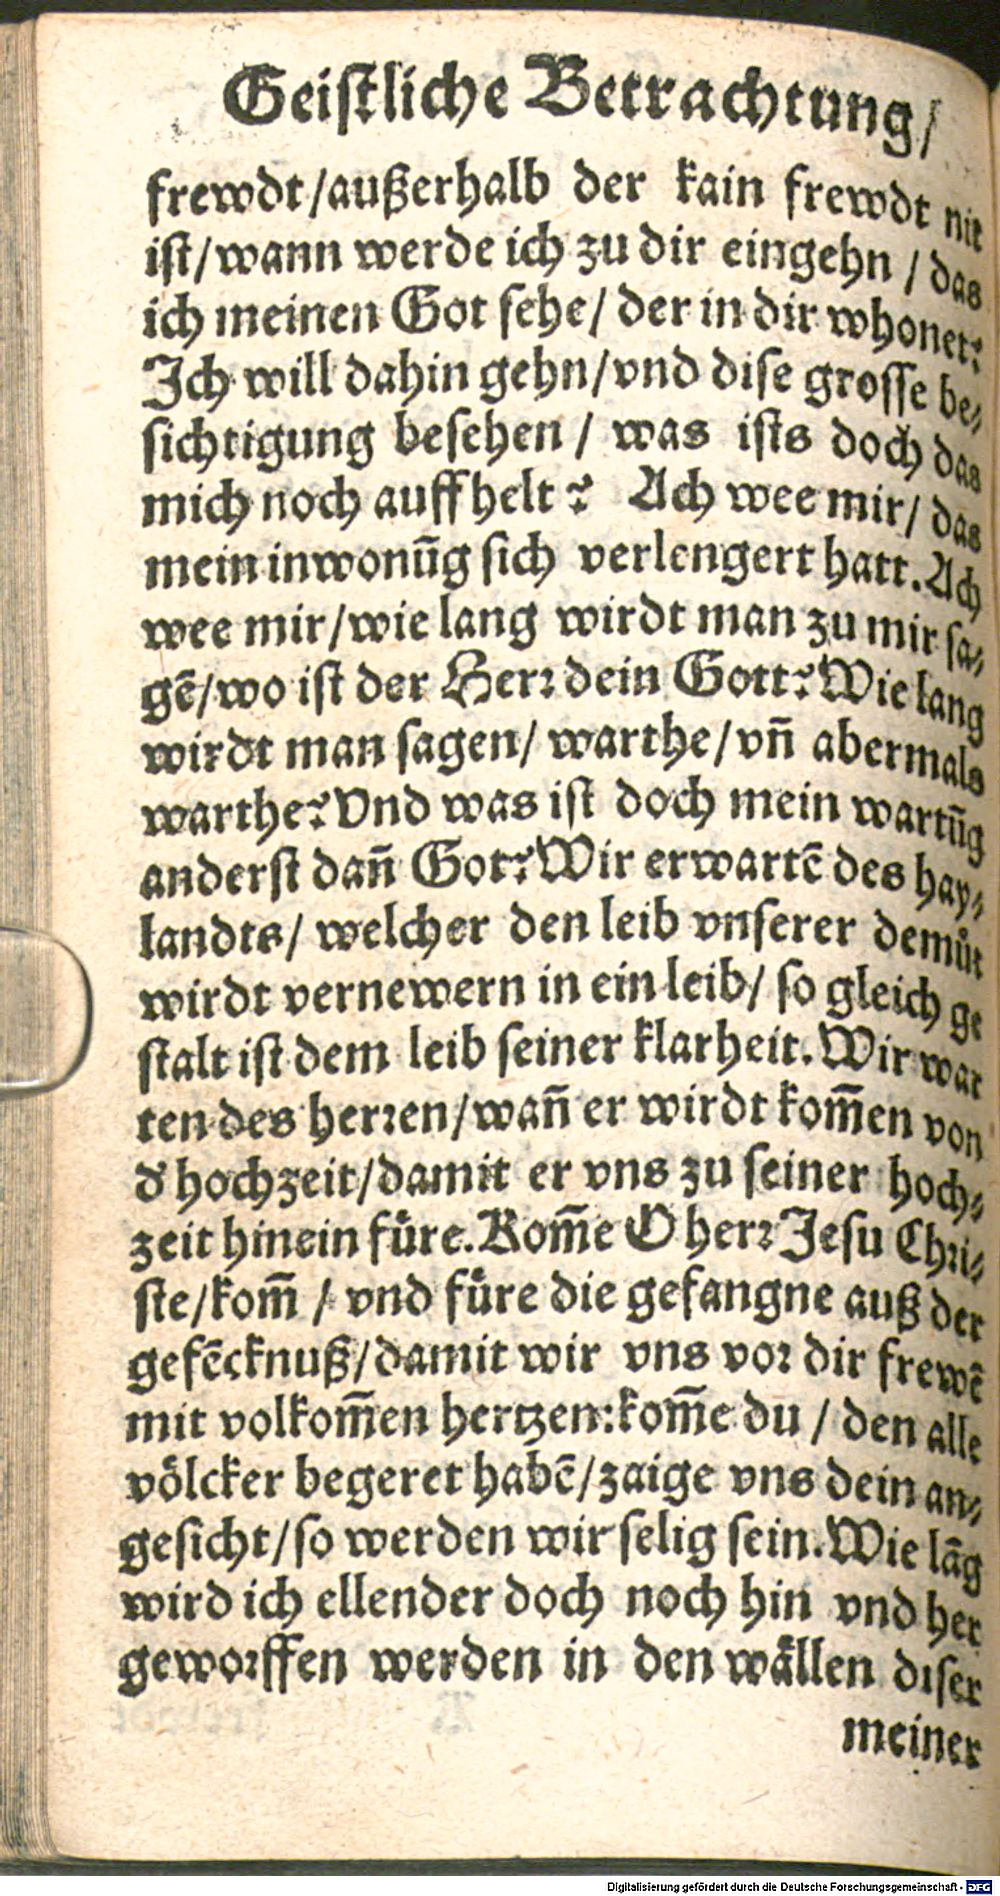 Geistliche Betrachtung/
frewdt/außerhalb der kain frewdt nit
ist/wann werde ich zu dir eingehn / das
ich meinen Got sehe/ der in dir whonet?
Ich will dahin gehn/vnd dise grosse be-
sichtigung besehen / was ists doch das
mich noch auffhelt? Ach wee mir/ das
mein inwonūg sich verlengert hatt. Ach
wee mir/wie lang wirdt man zu mir sa-
gē/wo ist der Herr dein Gott? Wie lang
wirdt man sagen/ warthe/vn̄ abermals
warthe? Vnd was ist doch mein wartūg
anderst dan̄ Got? Wir erwartē des hay-
landts/ welcher den leib vnserer demůt
wirdt vernewern in ein leib/ so gleich ge
stalt ist dem leib seiner klarheit. Wir war
ten des herren/wan̄ er wirdt kom̄en von
d' hochzeit/damit er vns zu seiner hoch-
zeit hinein füre. Kom̄e O herr Jesu Chri-
ste/kom̄ / vnd füre die gefangne auß der
gefēcknuß/damit wir vns vor dir frewē
mit volkom̄en hertzen: kom̄e du / den alle
völcker begeret habē/zaige vns dein an-
gesicht/so werden wir selig sein. Wie lāg
wird ich ellender doch noch hin vnd her
geworffen werden in den wällen diser
meiner
Digitalisierung gefördert durch die Deutsche Forschungsgemeinschaft - DFG